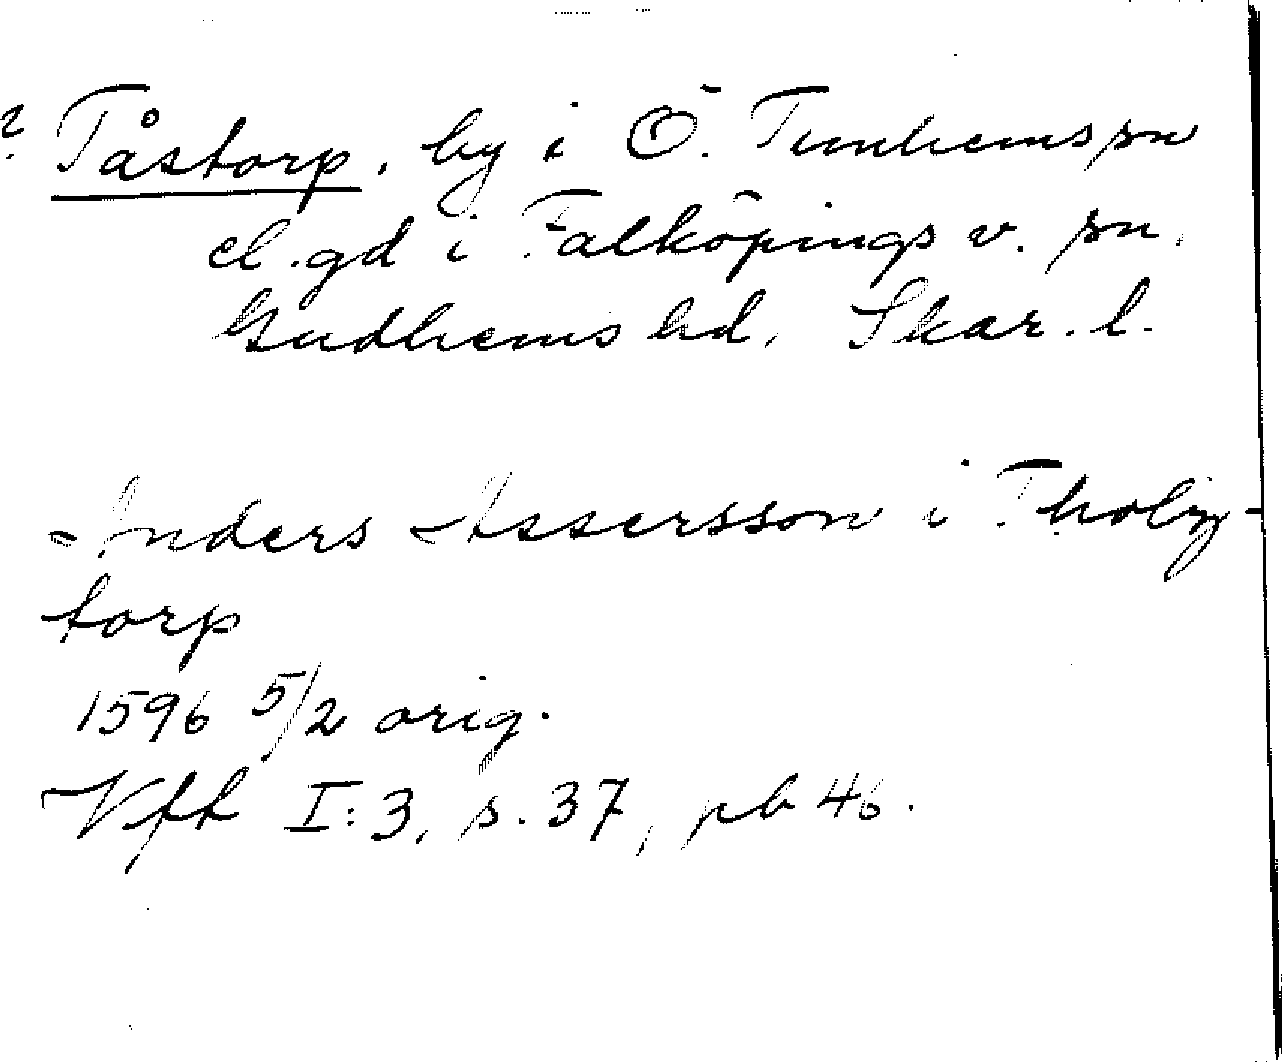 ? Tåstorp, by i Ö. Tunhems sn
el. gd i Falköpings v. sn.
Gudhems hd, Skar. l.
Anders Assersson i Tholiz-
torp
1596 5/2 orig.
Vff I:3, s. 37, pb 46.